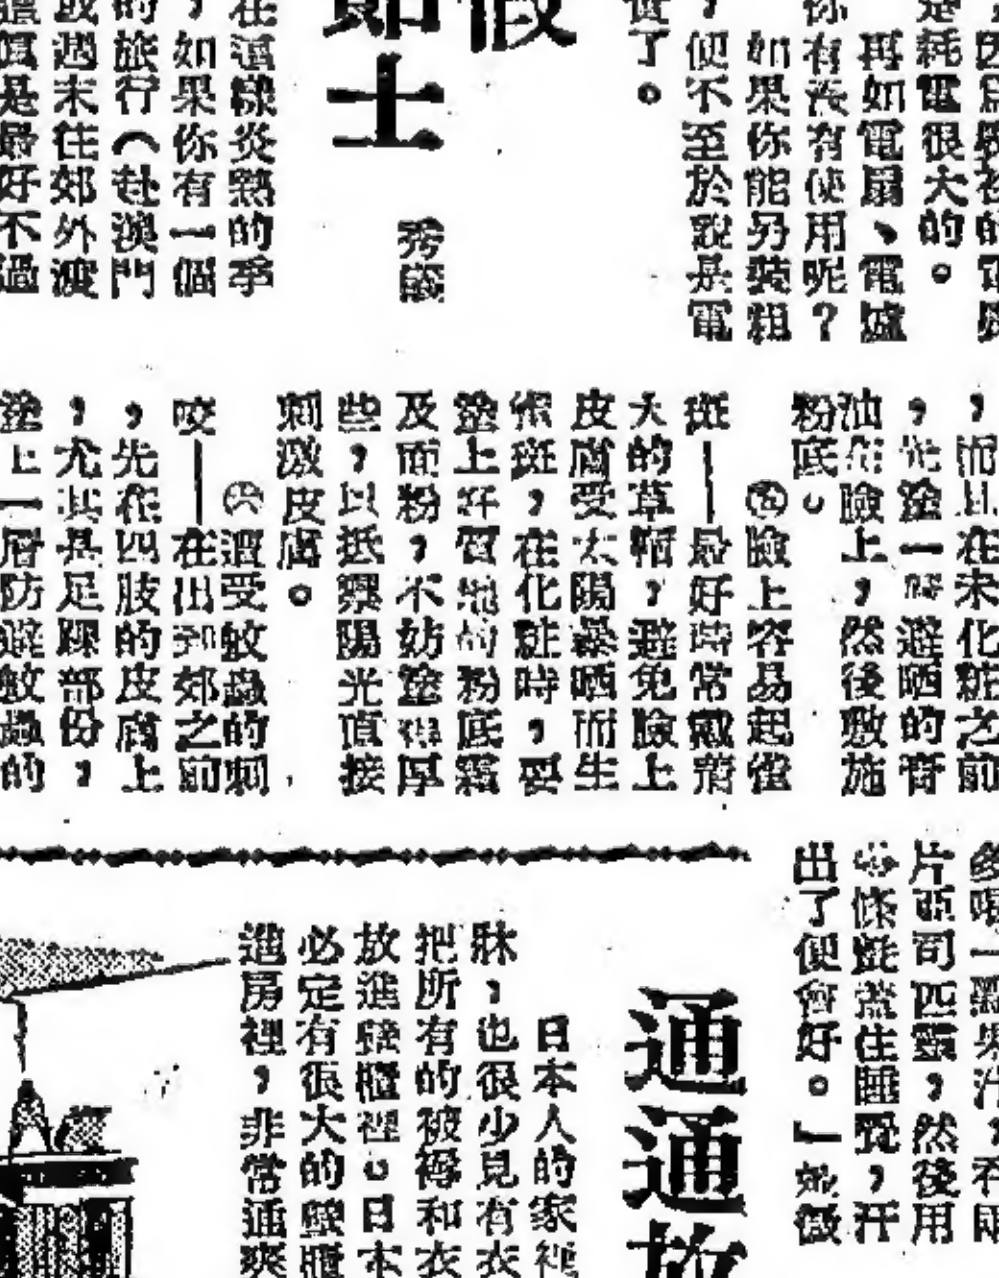 是耗電很大的。
再如電扇、電爐
你有沒有使用呢？
如果你能另裝粗
，便不至於說是電
了。
假
士
秀
在這樣炎熱的季
，如果你有一個
的旅行（赴澳門
或週末往郊外渡
還嘆是最好不過
，而且在未化粧之前
，先塗一層避晒的膏
油在臉上，然後敷施
粉底。
㊄臉上容易起雀
斑——最好時常戴濶
大的草帽，避免臉上
皮膚受太陽暴晒而生
雀斑，在化粧時，要
塗上好質地的粉底霜
及面粉，不妨塗得厚
些，以抵禦陽光直接
刺激皮膚。
㊅遭受蚊蟲的刺
咬——在出到郊之前
，先在四肢的皮膚上
，尤其是足踝部份，
塗上一層防避蚊蟲的
片亞司匹靈，然後用
條氈蓋住睡覺，汗
出了便會好。」
通通放
日本人的家裡
牀，也很少見有衣
把所有的被褥和衣
放進壁櫃裡。日本
必定有很大的壁櫃
進房裡，非常通爽